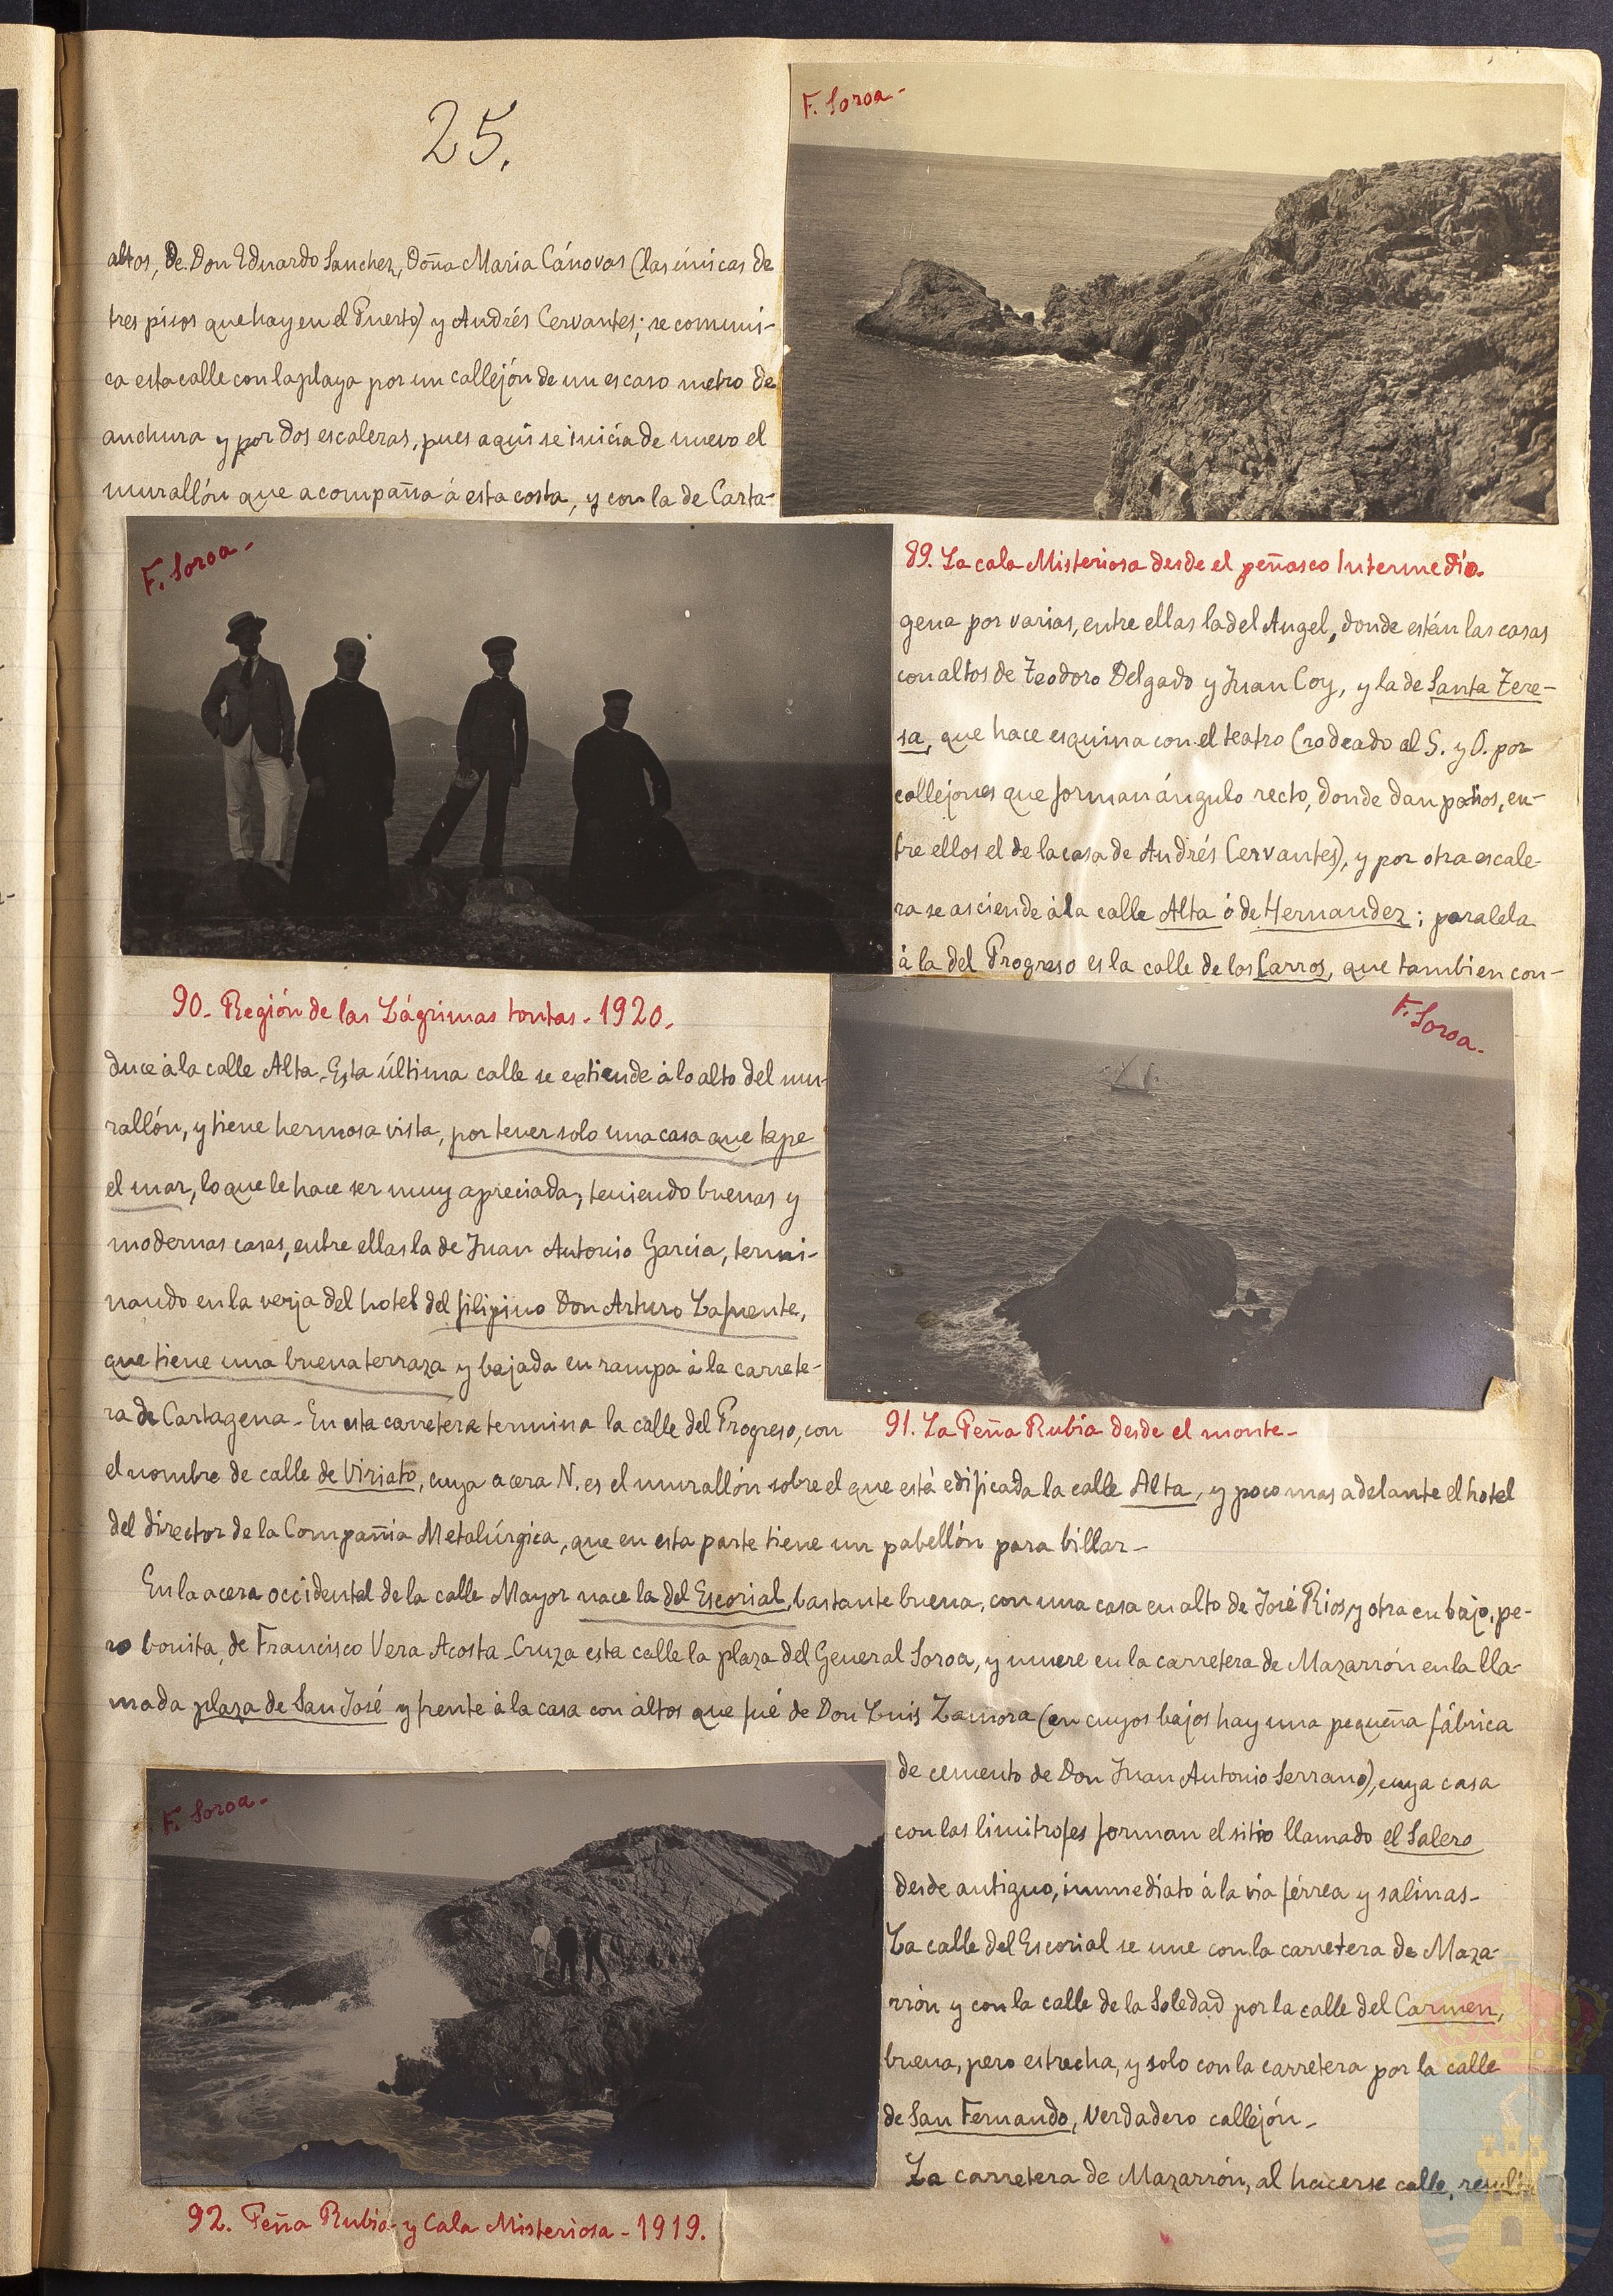 25.
F. Soroa-
altos, de Don Eduardo Sanchez, Doña María Cánovas (las únicas de
tres pisos que hay en el Puerto) y Andrés Cervantes; se comuni-
ca esta calle con la playa por un callejón de un escaso metro de
anchura y por dos escaleras, pues aquí se inicia de nuevo el
murallón que acompaña á esta costa, y con la de Carta-
F. Soroa-
89. La cala Misteriosa desde el peñasco Intermedio.
gena por varias, entre ellas la del Angel, donde están las casas
con altos de Teodoro Delgado y Juan Coy, y la de Santa Tere-
sa, que hace esquina con el teatro (rodeado al S. y O. por
callejones que forman ángulo recto, donde dan patios, en-
tre ellos el de la casa de Andrés Cervantes), y por otra escale-
ra se asciende á la calle Alta ó de Hernandez; paralela
á la del Progreso es la calle de los Carros, que tambien con-
90. Región de las Lágrimas tontas - 1920.
F. Soroa.
duce á la calle Alta. Esta última calle se extiende á lo alto del mu-
rallón, y tiene hermosa vista, por tener solo una casa que tape
el mar, lo que le hace ser muy apreciada, teniendo buenas y
modernas casas, entre ellas la de Juan Antonio García, termi-
nando en la verja del hotel del filipino Don Arturo Lafuente,
que tiene una buena terraza y bajada en rampa á la carrete-
ra de Cartagena - En esta carretera termina la calle del Progreso, con
91. La Peña Rubia desde el monte-
el nombre de calle de Viriato, cuya acera N. es el murallón sobre el que está edificada la calle Alta, y poco mas adelante el hotel
del director de la Compañia Metalúrgica, que en esta parte tiene un pabellón para billar-
En la acera occidental de la calle Mayor nace la del Escorial, bastante buena, con una casa en alto de José Rios, y otra en bajo, pe-
ro bonita, de Francisco Vera Acosta - Cruza esta calle la plaza del General Soroa, y muere en la carretera de Mazarrón en la lla-
mada plaza de San José y frente á la casa con altos que fué de Don Luis Zamora (en cuyos bajos hay una pequeña fábrica
de cemento de Don Juan Antonio Serrano), cuya casa
con las limitrofes forman el sitio llamado el Salero
desde antiguo, inmediato á la via férrea y salinas-
La calle del Escorial se une con la carretera de Maza-
rrón y con la calle de la Soledad por la calle del Carmen,
buena, pero estrecha, y solo con la carretera por la calle
de San Fernando, verdadero callejón-
La carretera de Mazarrón, al hacerse calle, resulta
F. Soroa-
92. Peña Rubia y Cala Misteriosa - 1919.